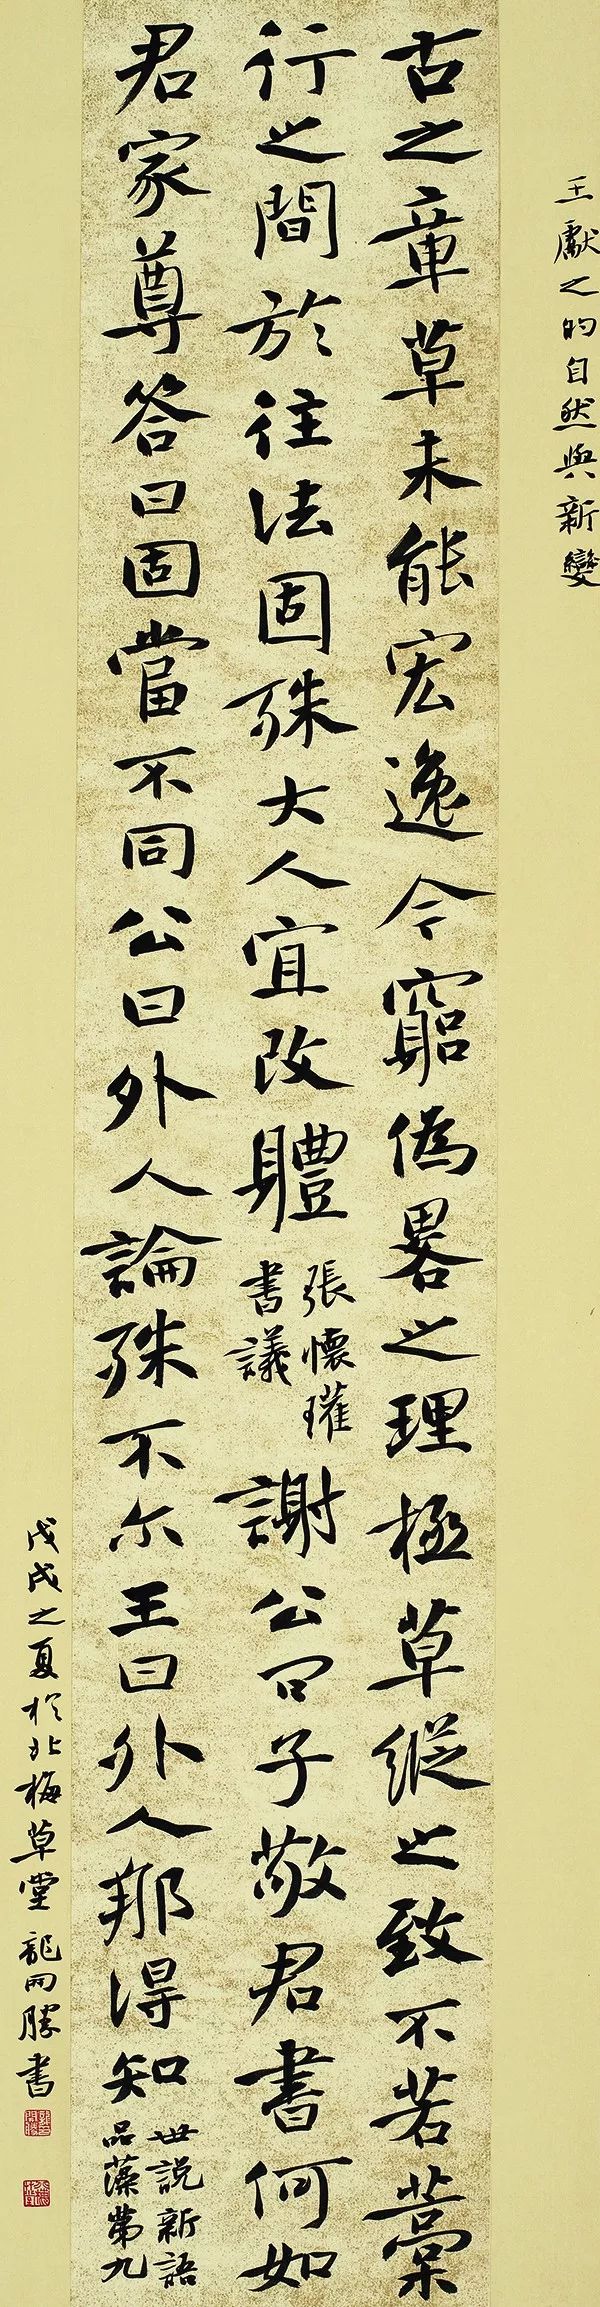 王獻之的自然與新變
古之章草未能宏逸今窮偽畧之理極草縱之致不若藁
行之間於往法固殊大人宜改體
張懷瓘
書議
謝公問子敬君書何如
君家尊答曰固當不同公曰外人論殊不尔王曰外人那得知
世說新語
品藻第九
戊戌之夏於北梅草堂龍開勝書